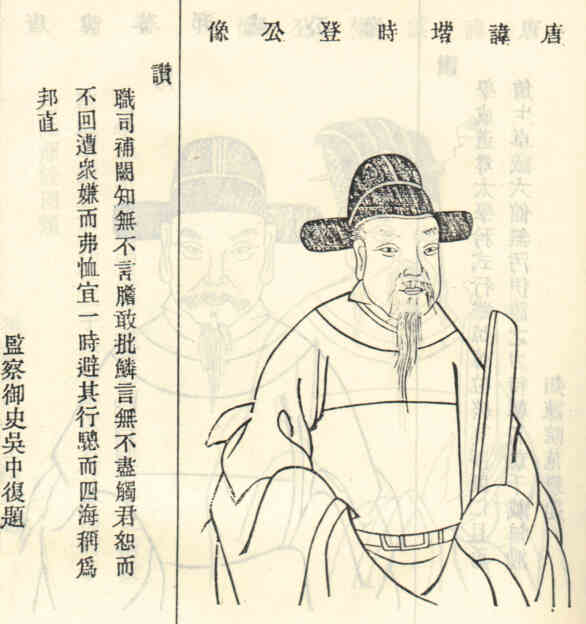 唐諱堦時登公像
讚
職司補闕知無不言膽敢批鱗言無不盡觸君恕而
不回遭衆嫌而弗恤宜一時避其行驄而四海稱爲
邦直
監察御史吳中復題